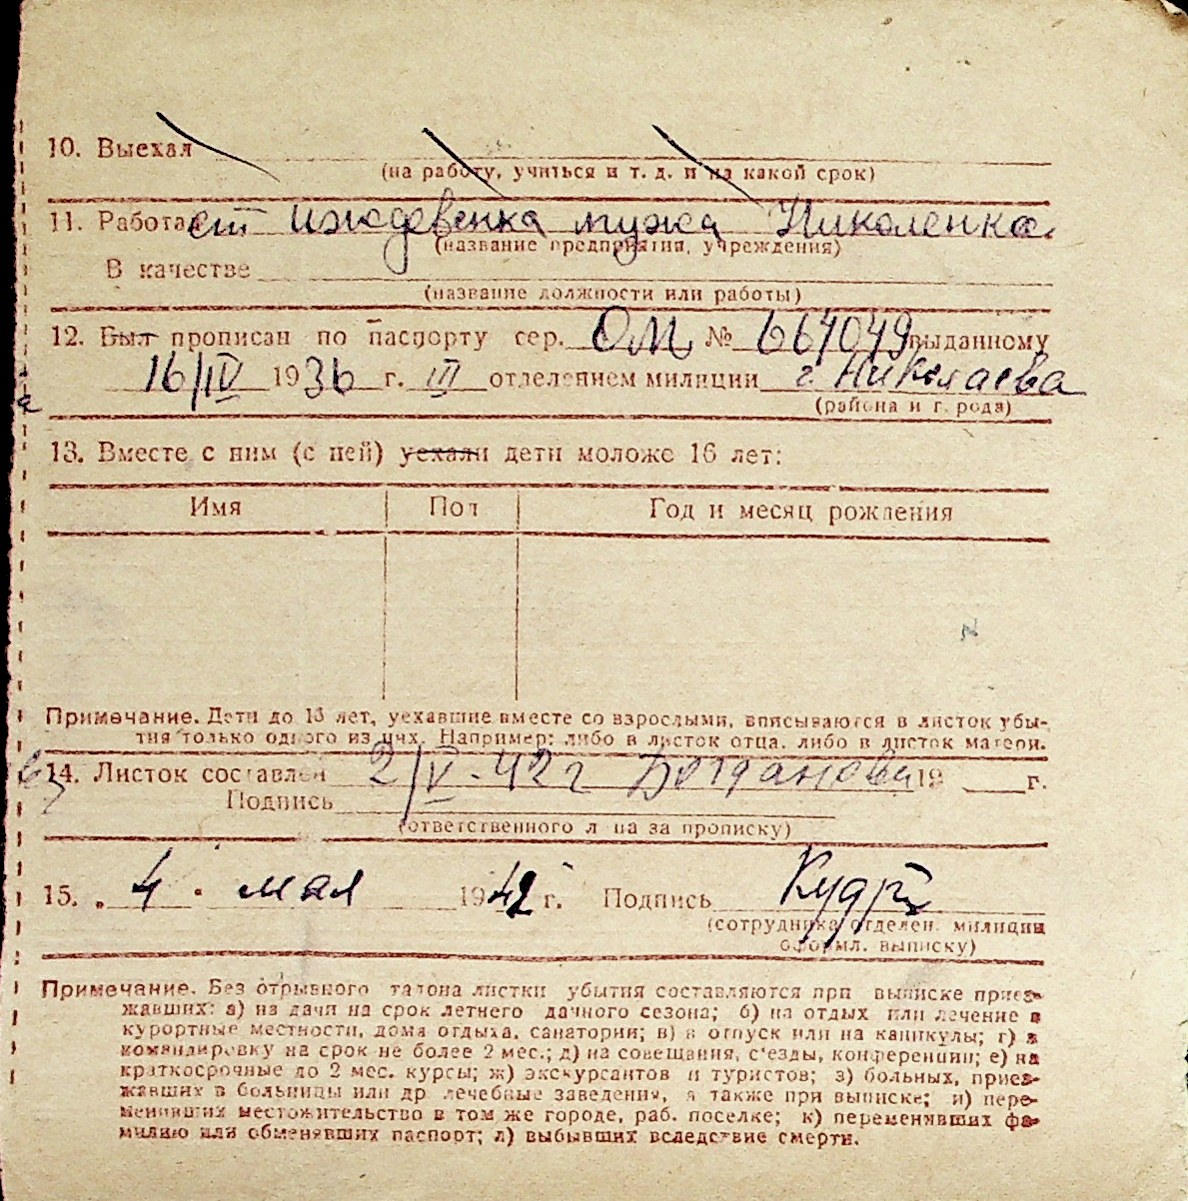 10. Выехал
(на работу, учиться и т. д. и на какой срок)
11. Работа ст иждевенка мужа Николенко.
(название предприятия, учреждения)
В качестве
(название должности или работы)
12. Был прописан по паспорту сер. ОМ № 664049 выданному
16/IV 1936 г. III отделением милиции г. Николаева
(района и города)
13. Вместе с ним (с ней) уехали дети моложе 16 лет:
Имя Пол Год и месяц рождения
Примечание. Дети до 16 лет, уехавшие вместе со взрослыми, вписываются в листок убы-
тия только одного из них. Например: либо в листок отца, либо в листок матери.
14. Листок составлен 2/V-42 г Богданова 19 г.
Подпись
(ответственного лица за прописку)
15. „ 4 . мая 1942 г. Подпись
(сотрудника отделен. милиции
оформл. выписку)
Примечание. Без отрывного талона листки убытия составляются при выписке приез-
жавших: а) на дачи на срок летнего дачного сезона; б) на отдых или лечение в
курортные местности, дома отдыха, санатории; в) в отпуск или на каникулы; г) в
командировку на срок не более 2 мес.; д) на совещания, с'езды, конференции; е) на
краткосрочные до 2 мес. курсы; ж) экскурсантов и туристов; з) больных, приез-
жавших в больницы или др лечебные заведения, а также при выписке; и) пере-
менивших местожительство в том же городе, раб. поселке; к) переменивших фа-
милию или обменявших паспорт; л) выбывших вследствие смерти.